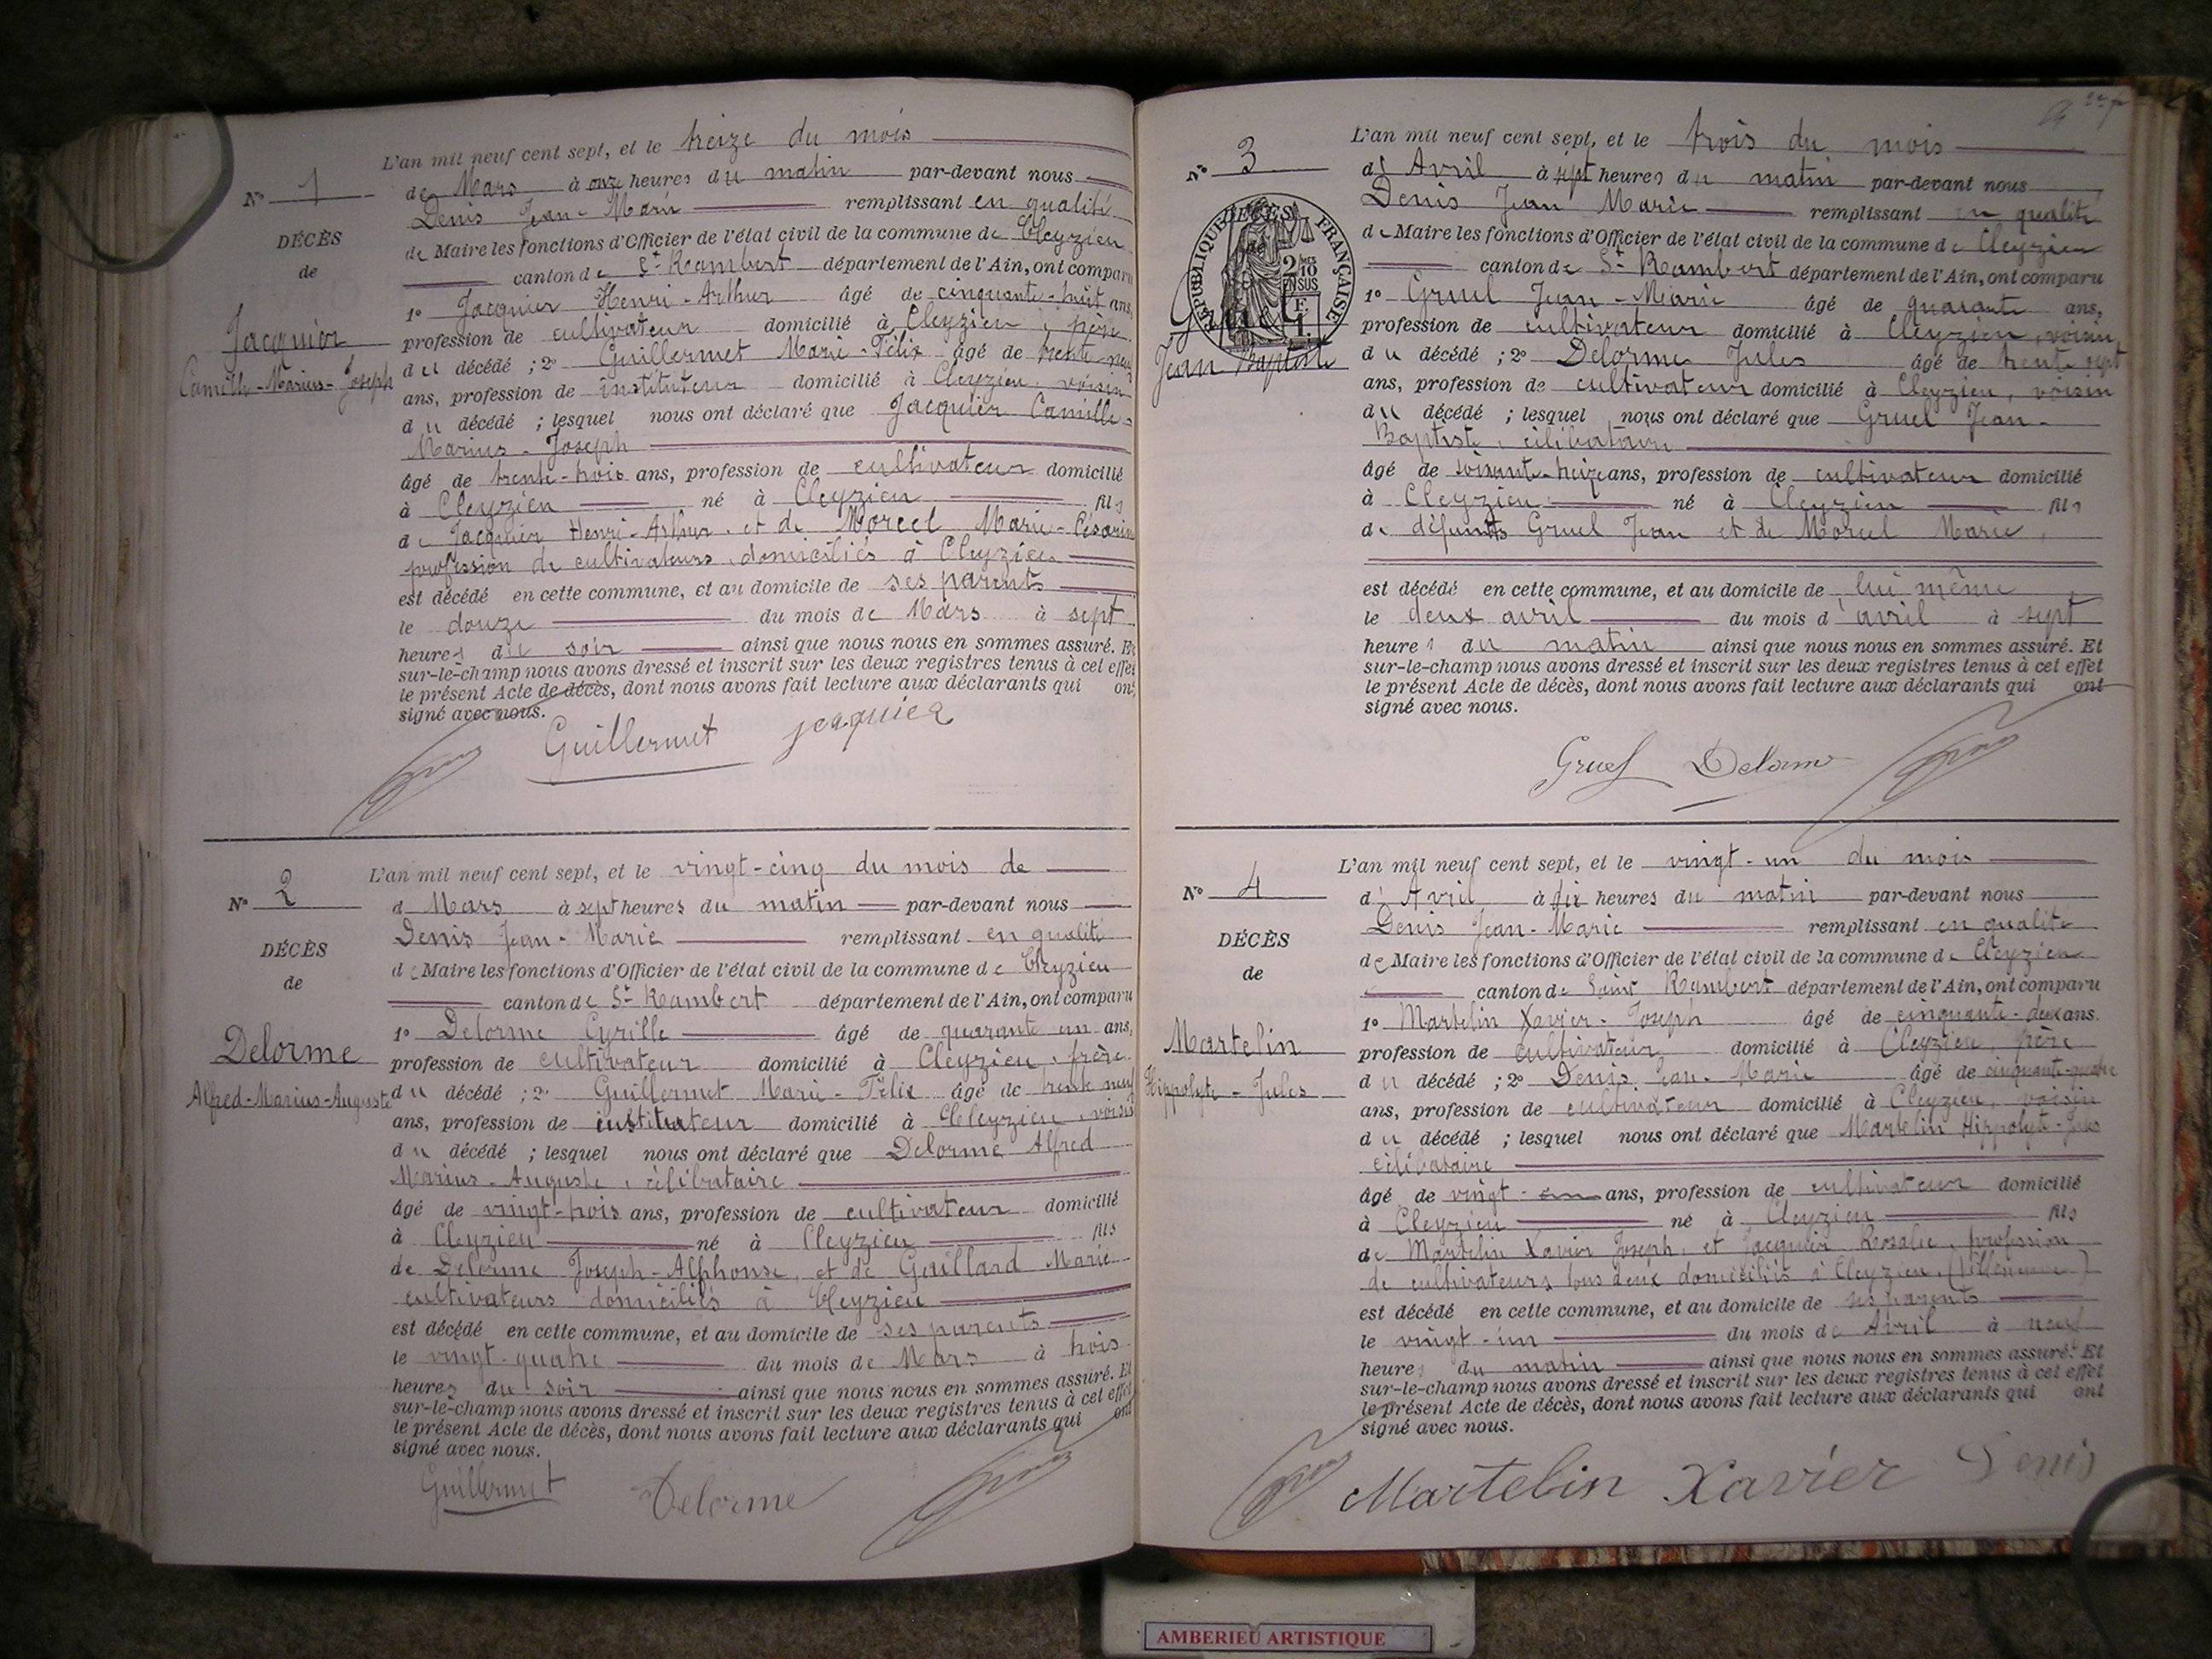 L'an mil neuf cent sept, et le treize du mois
N° 1
de Mars à onze heures du matin par-devant nous
Denis Jean-Marie remplissant en qualité
DÉCÈS
de Maire les fonctions d'Officier de l'état civil de la commune de Cleyzieu
de
canton de St Rambert département de l'Ain, ont comparu
1° Jacquier Henri-Arthur âgé de cinquante-huit ans,
Jacquier
profession de cultivateur domicilié à Cleyzieu, père
Camille-Marius-Joseph
du décédé ; 2° Guillermet Marie-Félix âgé de trente-neuf
ans, profession de instituteur domicilié à Cleyzieu, voisin
du décédé ; lesquel nous ont déclaré que Jacquier Camille-
Marius-Joseph
âgé de trente-trois ans, profession de cultivateur domicilié
à Cleyzieu né à Cleyzieu fils
de Jacquier Henri-Arthur, et de Morcel Marie-Césarine
profession de cultivateurs, domiciliés à Cleyzieu
est décédé en cette commune, et au domicile de ses parents
le douze du mois de Mars à sept
heures du soir ainsi que nous nous en sommes assuré. Et
sur-le-champ nous avons dressé et inscrit sur les deux registres tenus à cet effet
le présent Acte de décès, dont nous avons fait lecture aux déclarants qui ont
signé avec nous.
Guillermet Jacquier
L'an mil neuf cent sept, et le vingt-cinq du mois de
N° 2
d Mars à sept heures du matin par-devant nous
Denis Jean-Marie remplissant en qualité
DÉCÈS
de Maire les fonctions d'Officier de l'état civil de la commune de Cleyzieu
de
canton de St Rambert département de l'Ain, ont comparu
1° Delorme Cyrille âgé de quarante un ans,
Delorme
profession de cultivateur domicilié à Cleyzieu, frère
Alfred-Marius-Auguste
du décédé ; 2° Guillermet Marie-Félix âgé de trente neuf
ans, profession de instituteur domicilié à Cleyzieu, voisin
du décédé ; lesquel nous ont déclaré que Delorme Alfred
Marius-Auguste, célibataire
âgé de vingt-trois ans, profession de cultivateur domicilié
à Cleyzieu né à Cleyzieu fils
de Delorme Joseph-Alphonse, et de Gaillard Marie
cultivateurs domiciliés à Cleyzieu
est décédé en cette commune, et au domicile de ses parents
le vingt-quatre du mois de Mars à trois
heures du soir ainsi que nous nous en sommes assuré. Et
sur-le-champ nous avons dressé et inscrit sur les deux registres tenus à cet effet
le présent Acte de décès, dont nous avons fait lecture aux déclarants qui ont
signé avec nous.
Guillermet Delorme
L'an mil neuf cent sept, et le trois du mois
N° 3
d'Avril à sept heures du matin par-devant nous
Denis Jean Marie remplissant en qualité
DÉCÈS
RÉPUBLIQUE FRANÇAISE
2 DMES 10 EN SUS
F. 1.
de Maire les fonctions d'Officier de l'état civil de la commune de Cleyzieu
canton de St Rambert département de l'Ain, ont comparu
1° Gruel Jean-Marie âgé de quarante ans,
profession de cultivateur domicilié à Cleyzieu, voisin
Jean Baptiste
du décédé ; 2° Delorme Jules âgé de trente sept
ans, profession de cultivateur domicilié à Cleyzieu, voisin
du décédé ; lesquel nous ont déclaré que Gruel Jean-
Baptiste, célibataire
âgé de soixante-treize ans, profession de cultivateur domicilié
à Cleyzieu né à Cleyzieu fils
de défunts Gruel Jean et de Morcel Marie,
est décédé en cette commune, et au domicile de lui même
le deux avril du mois d'avril à sept
heures du matin ainsi que nous nous en sommes assuré. Et
sur-le-champ nous avons dressé et inscrit sur les deux registres tenus à cet effet
le présent Acte de décès, dont nous avons fait lecture aux déclarants qui ont
signé avec nous.
Gruel Delorme
L'an mil neuf cent sept, et le vingt-un du mois
N° 4
d'Avril à dix heures du matin par-devant nous
Denis Jean-Marie remplissant en qualité
DÉCÈS
de Maire les fonctions d'Officier de l'état civil de la commune de Cleyzieu
de
canton de Saint Rambert département de l'Ain, ont comparu
1° Martelin Xavier-Joseph âgé de cinquante-deux ans.
Martelin
profession de cultivateur domicilié à Cleyzieu, père
Hippolyte-Jules
du décédé ; 2° Denis Jean-Marie âgé de cinquante-quatre
ans, profession de cultivateur domicilié à Cleyzieu, voisin
du décédé ; lesquel nous ont déclaré que Martelin Hippolyte-Jules
célibataire
âgé de vingt-un ans, profession de cultivateur domicilié
à Cleyzieu né à Cleyzieu fils
de Martelin Xavier Joseph, et Jacquier Rosalie, profession
de cultivateurs tous deux domiciliés à Cleyzieu,
est décédé en cette commune, et au domicile de ses parents
le vingt-un du mois de Avril à neuf
heures du matin ainsi que nous nous en sommes assuré. Et
sur-le-champ nous avons dressé et inscrit sur les deux registres tenus à cet effet
le présent Acte de décès, dont nous avons fait lecture aux déclarants qui ont
signé avec nous.
Martelin Xavier Denis
AMBERIEU ARTISTIQUE